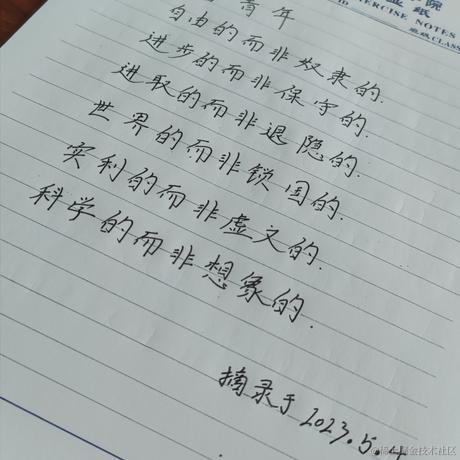 院
签纸
EXERCISE NOTES
班级CLASS
青年
自由的而非奴隶的.
进步的而非保守的.
进取的而非退隐的.
世界的而非锁国的.
实利的而非虚文的.
科学的而非想象的.
摘录于2023.5.4
@稀土掘金技术社区